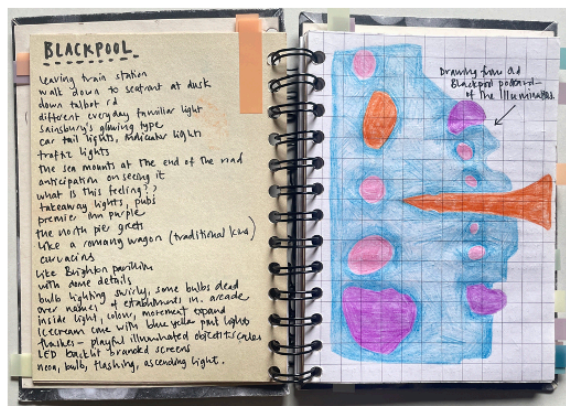 BLACKPOOL
leaving train station
walk down to seafront at dusk
down talbot rd
different everyday familiar light
Sainsbury's glowing type
car tail lights, indicator lights
traffic lights
the sea mounts at the end of the road
anticipation on seeing it
what is this feeling??
takeaway lights, pubs
premier inn purple
the north pier greets
like a romany wagon (traditional kind)
curvacious
like Brighton pavilion
with some details
bulb lighting swirly, some bulbs dead
over names of establishments in. arcade
inside light, colour, movement expand
icecream cone with blue yellow pink lights
flashes – playful illuminated objects scales
LED backlit branded screens
neon, bulb, flashing, ascending light.
Drawing from old
Blackpool postcard –
of the Illuminations